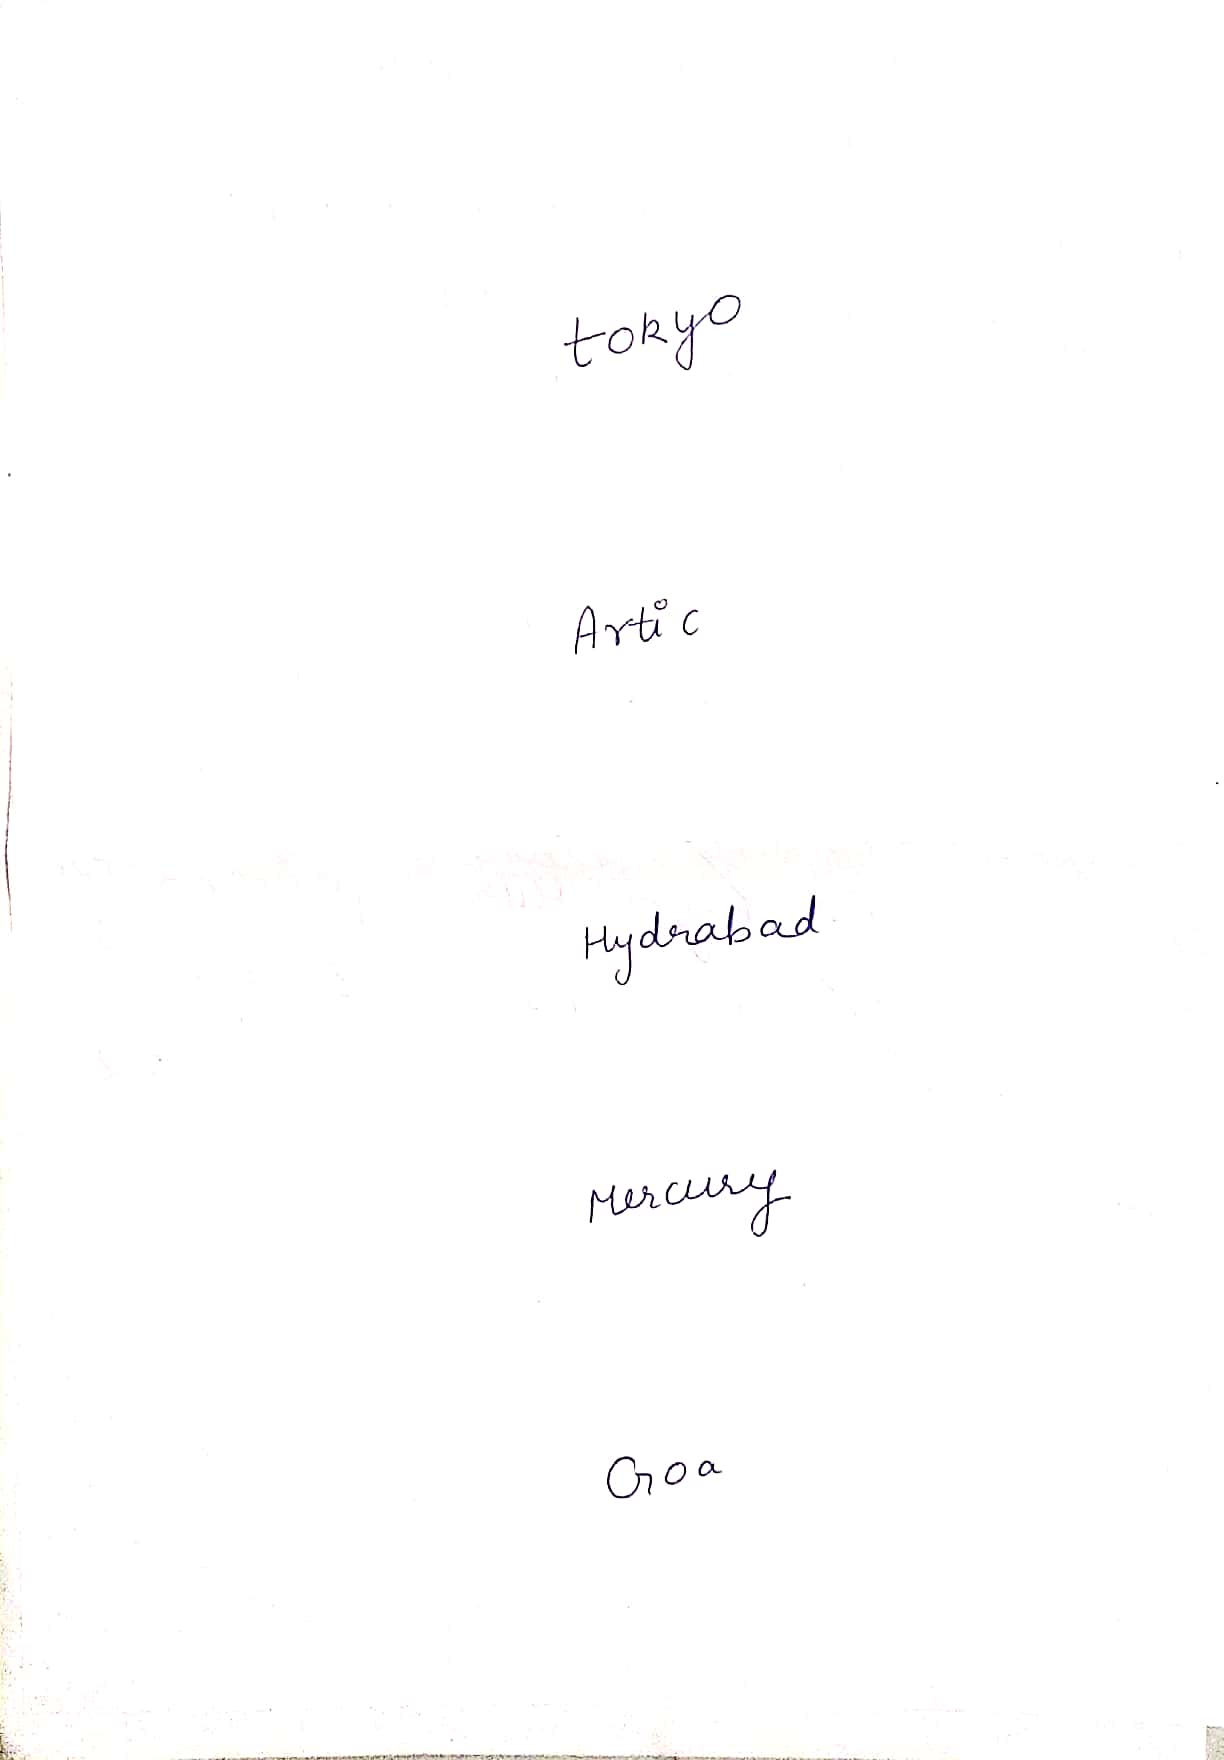 tokyo
Artic
Hydrabad
Mercury
Goa